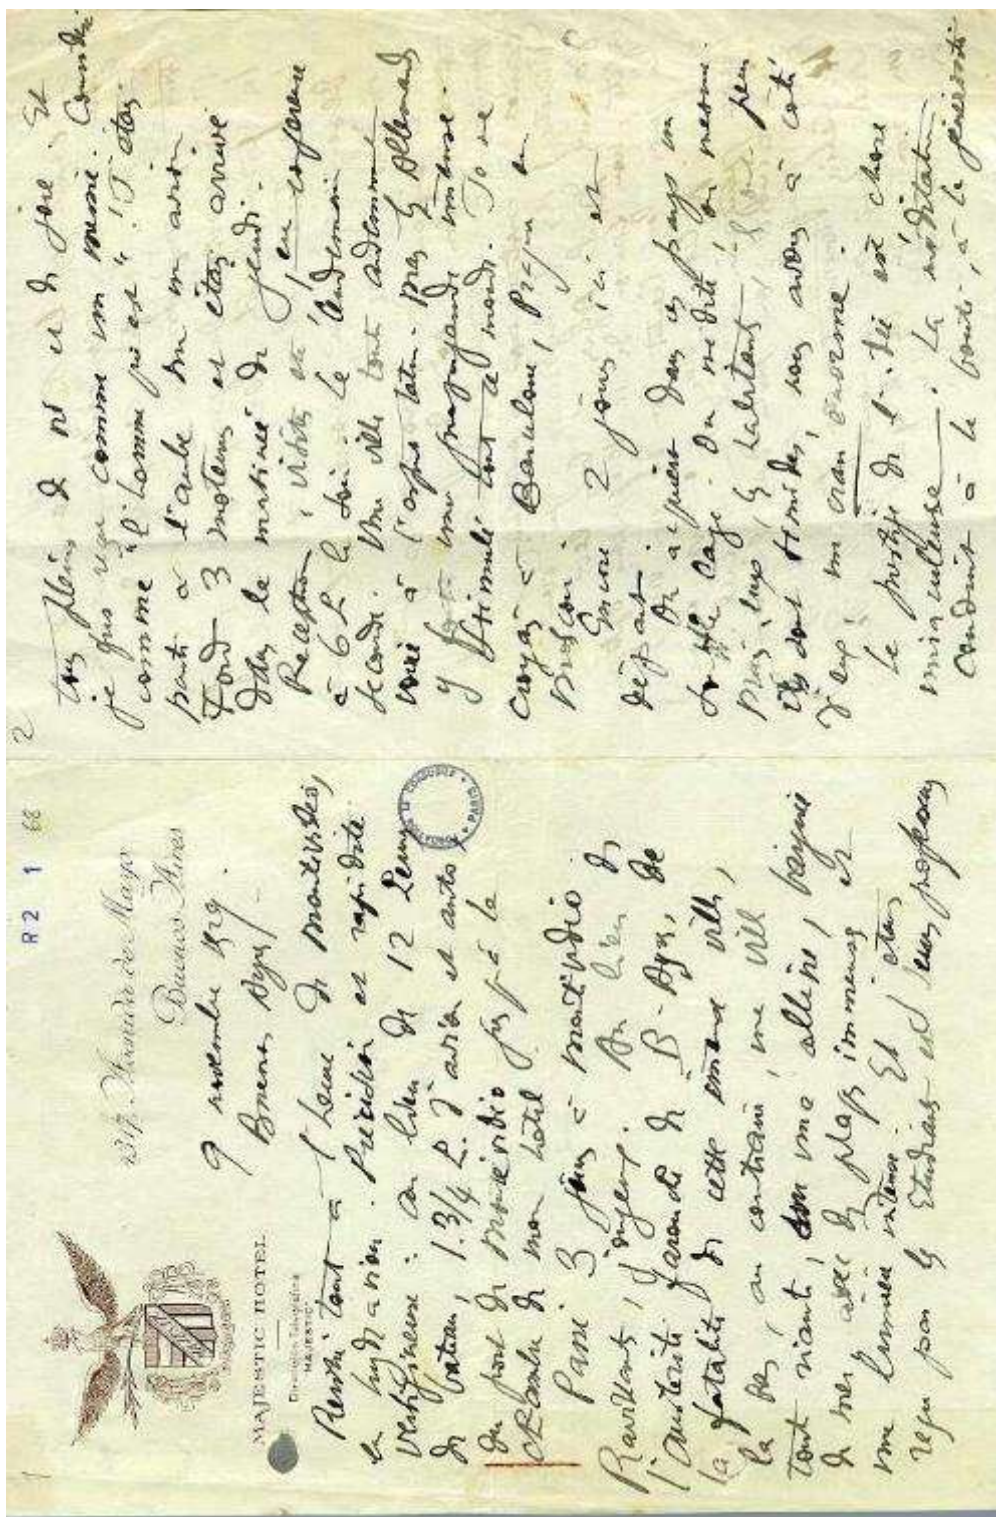 R2 1 68
1317, Avenida de Mayo
Buenos Aires
MAJESTIC HOTEL
Dirección Telegráfica
"MAJESTIC"
9 novembre 1929.
Buenos Ayres
Rentré tout à l'heure de Montevideo,
en hydravion. Précision et rapidité
vertigineuse : au lieu de 12 heures
de bateau, 1.3/4 h. d'avion et auto
du port de Montevideo jusqu'à la
chambre de mon hotel
Passé 3 jours à Montevideo
Ravissants, Au lieu de
l'austérité de B-Ayres, de
la fatalité de cette immense ville,
là bas, au contraire, une ville
tout riante, une allègre, baignée
de mer avec des plages immenses et
une lumière intense. Et étais
reçu par les Etudiants et leurs professeurs
2
tous pleins de vie et de joie. Et
je fus reçu comme un messie. Considéré
comme "l'homme qui est". J'étais
parti à l'aube dans un avion
Ford 3 moteurs et étais arrivé
dans la matinée de jeudi.
Reception, visites etc, en conference
à 6 h le soir. Le lendemain
seconde. Une ville tout
à l'esprit latin. Mais les Allemands
y font une propagande immense.
tout le monde. Je me
croyais à Barcelone, Prague ou
Moscou.
Encore 2 jours ici et
départ.
On acquiert dans ces pays un
On me dit,
les habitants,
ils sont timides, nous avons à côté
d'eux, un cran énorme.
Le prestige de l'idée est chose
merveilleuse. La méditation
conduit à la bonté, à la générosité